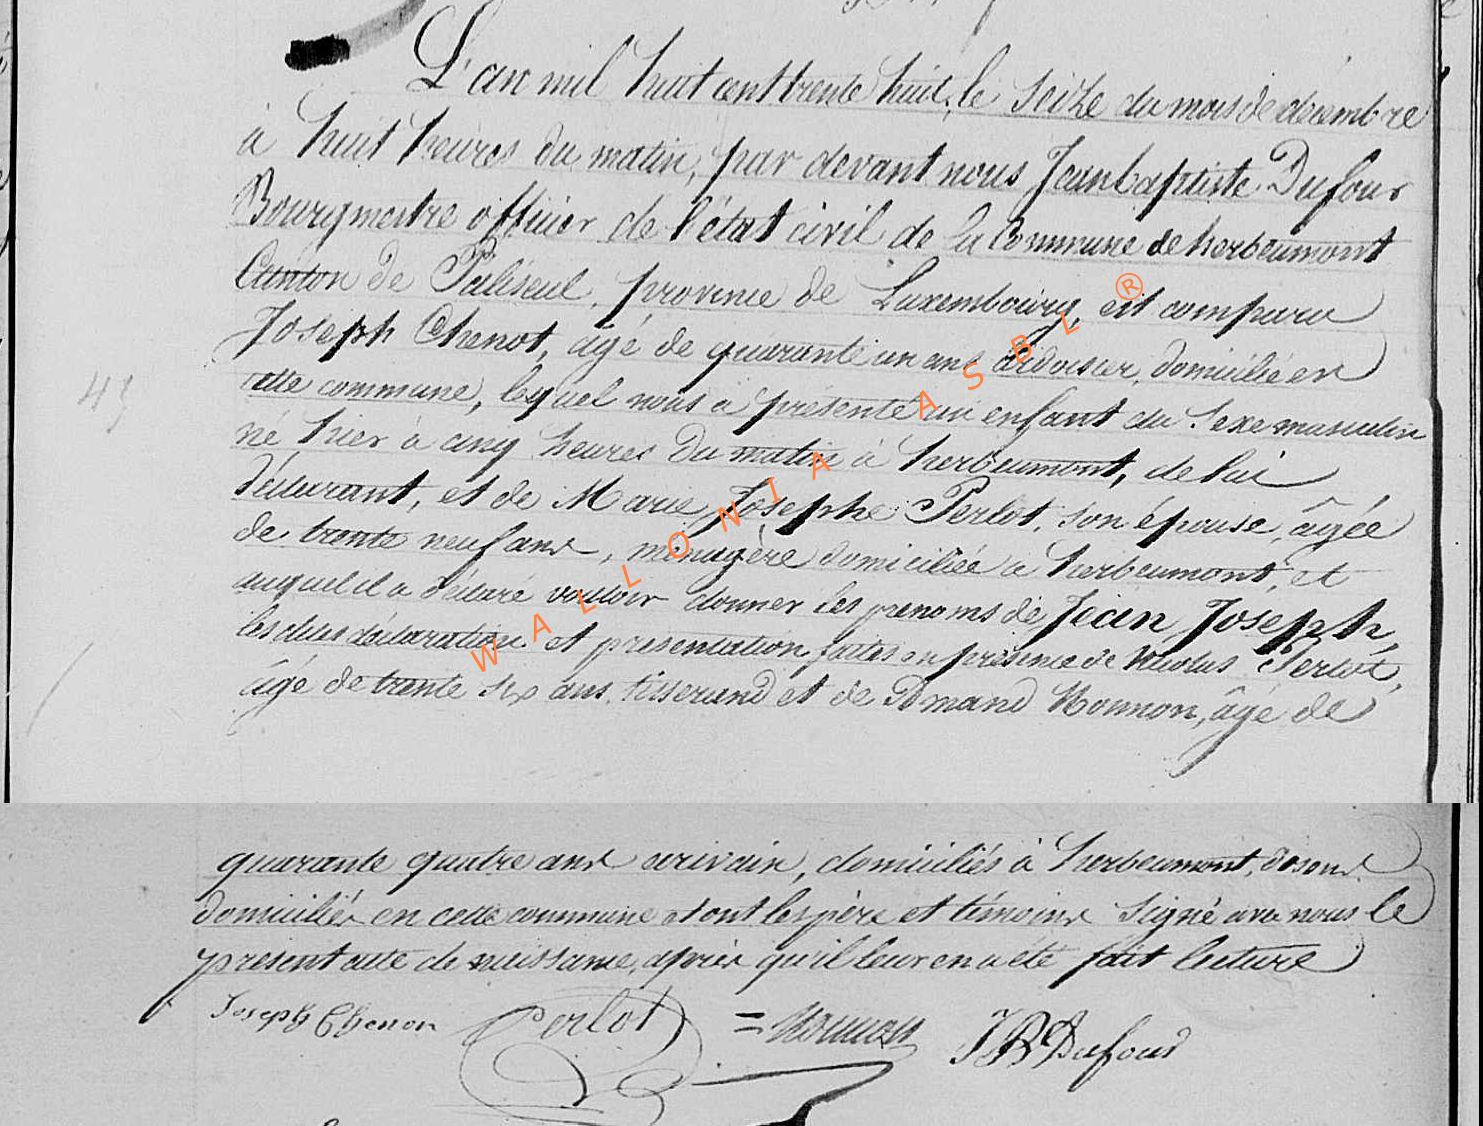 L'an mil huit cent trente huit, le seize du mois de décembre
à huit heures du matin, par devant nous Jean baptiste Dufour
Bourgmestre officier de l'état civil de la Commune de herbeumont
Canton de Paliseul, province de Luxembourg, est comparu
Joseph Chenot, âgé de quarante un ans ardoisier, domicilié en
cette commune, lequel nous a présenté un enfant du sexe masculin
né hier à cinq heures du matin à herbeumont, de lui
déclarant, et de Marie Josephe Perlot, son épouse, âgée
de trente neuf ans, ménagère domiciliée à herbeumont, et
auquel il a déclaré vouloir donner les prenoms de Jean Joseph,
les dites déclaration et présentation faites en présence de Nicolas Perlot,
âgé de trente six ans, tisserand et de Amand Monnon, âgé de
quarante quatre ans écrivain, domiciliés à herbeumont,
domiciliés en cette commune et ont les père et témoins signé avec nous le
présent acte de naissance, après qu'il leur en a été fait lecture
Joseph Chenon Perlot = Monnon JB Dufour
45
WALLONIA ASBL ®